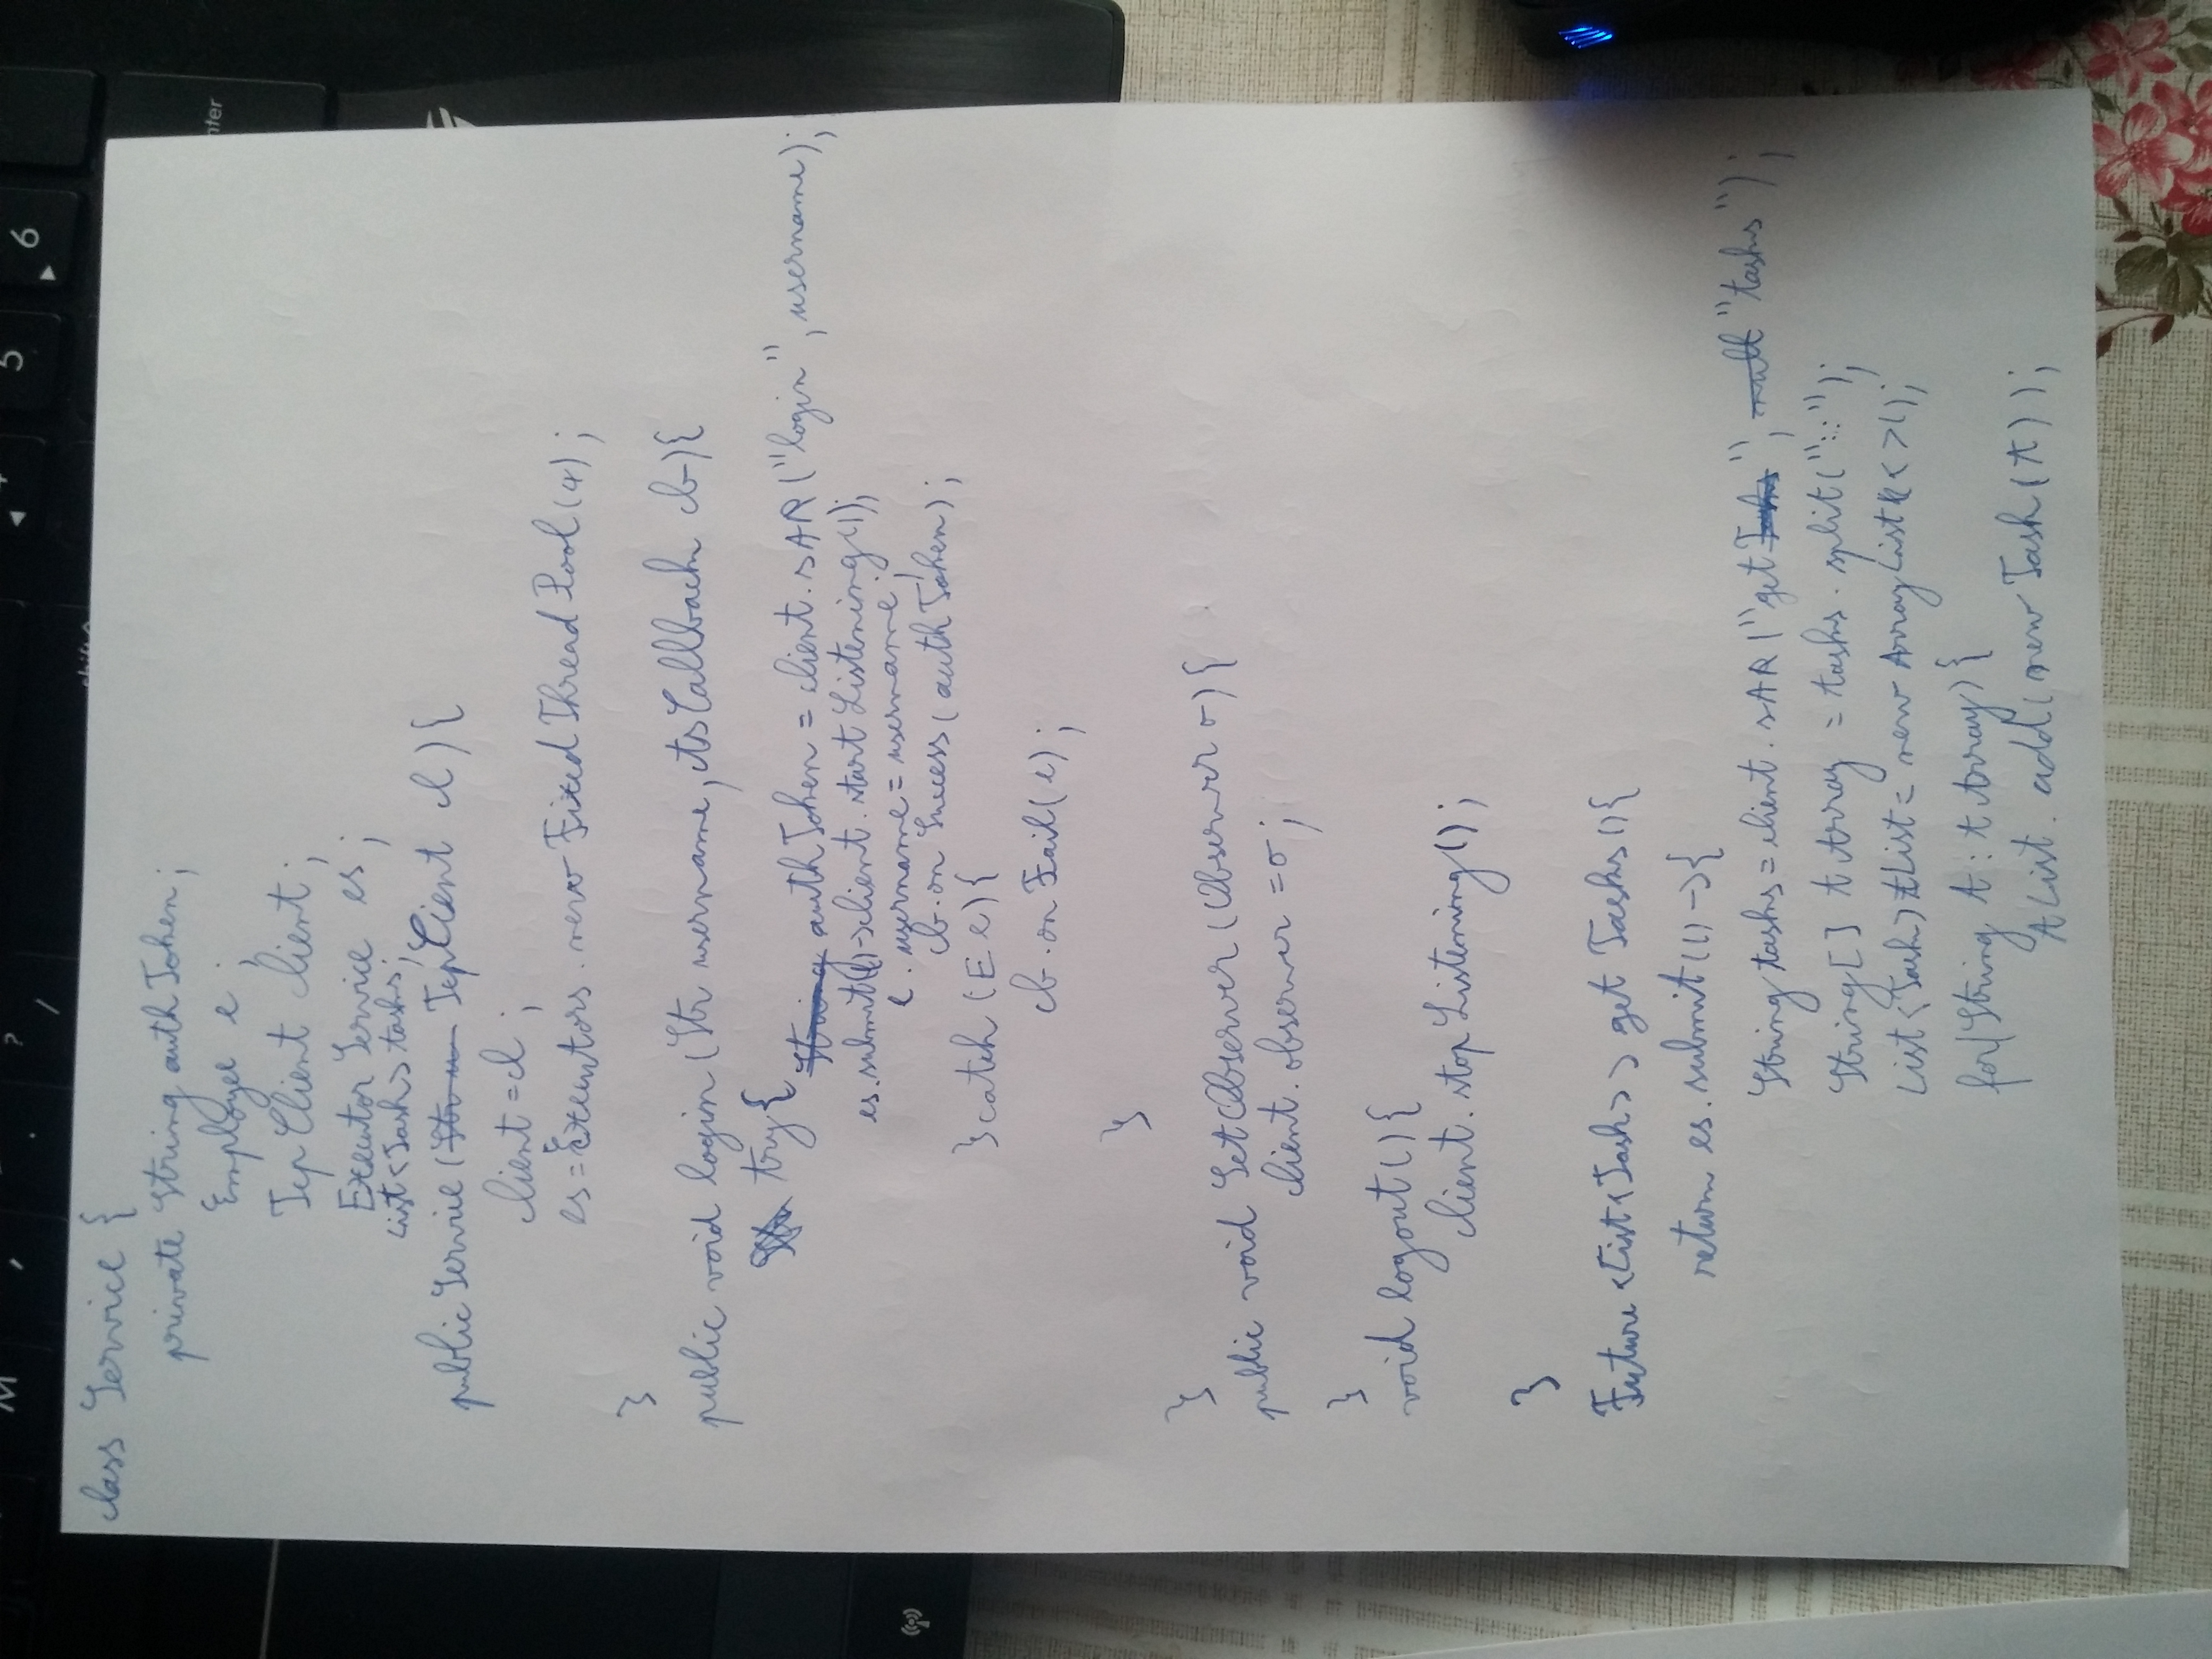 M , . ? / 4 5 6
shift
enter
class Service {
private String authToken;
Employee e ;
TcpClient client;
ExecutorService es;
List<Task> tasks;
public Service (Str u TcpClient cl){
client = cl ;
es = Executors.newFixedThreadPool(4);
}
public void login (Str username, AsCallback cb){
try{
String authToken = client.sAR("login", username);
es.submit(()->client.startListening());
e.username = username;
cb.onSuccess(authToken);
}catch (E e){
cb.onFail(e);
}
}
public void SetObserver (Observer o){
client.observer = o;
}
void logout(){
client.stopListening();
}
Future<List<Task>> getTasks(){
return es.submit(()->{
String tasks = client.sAR("get Tasks", null "tasks");
String[] tArray = tasks.split("::");
List<Task> tList = new ArrayList<>();
for(String t : tArray){
tList.add(new Task(t));